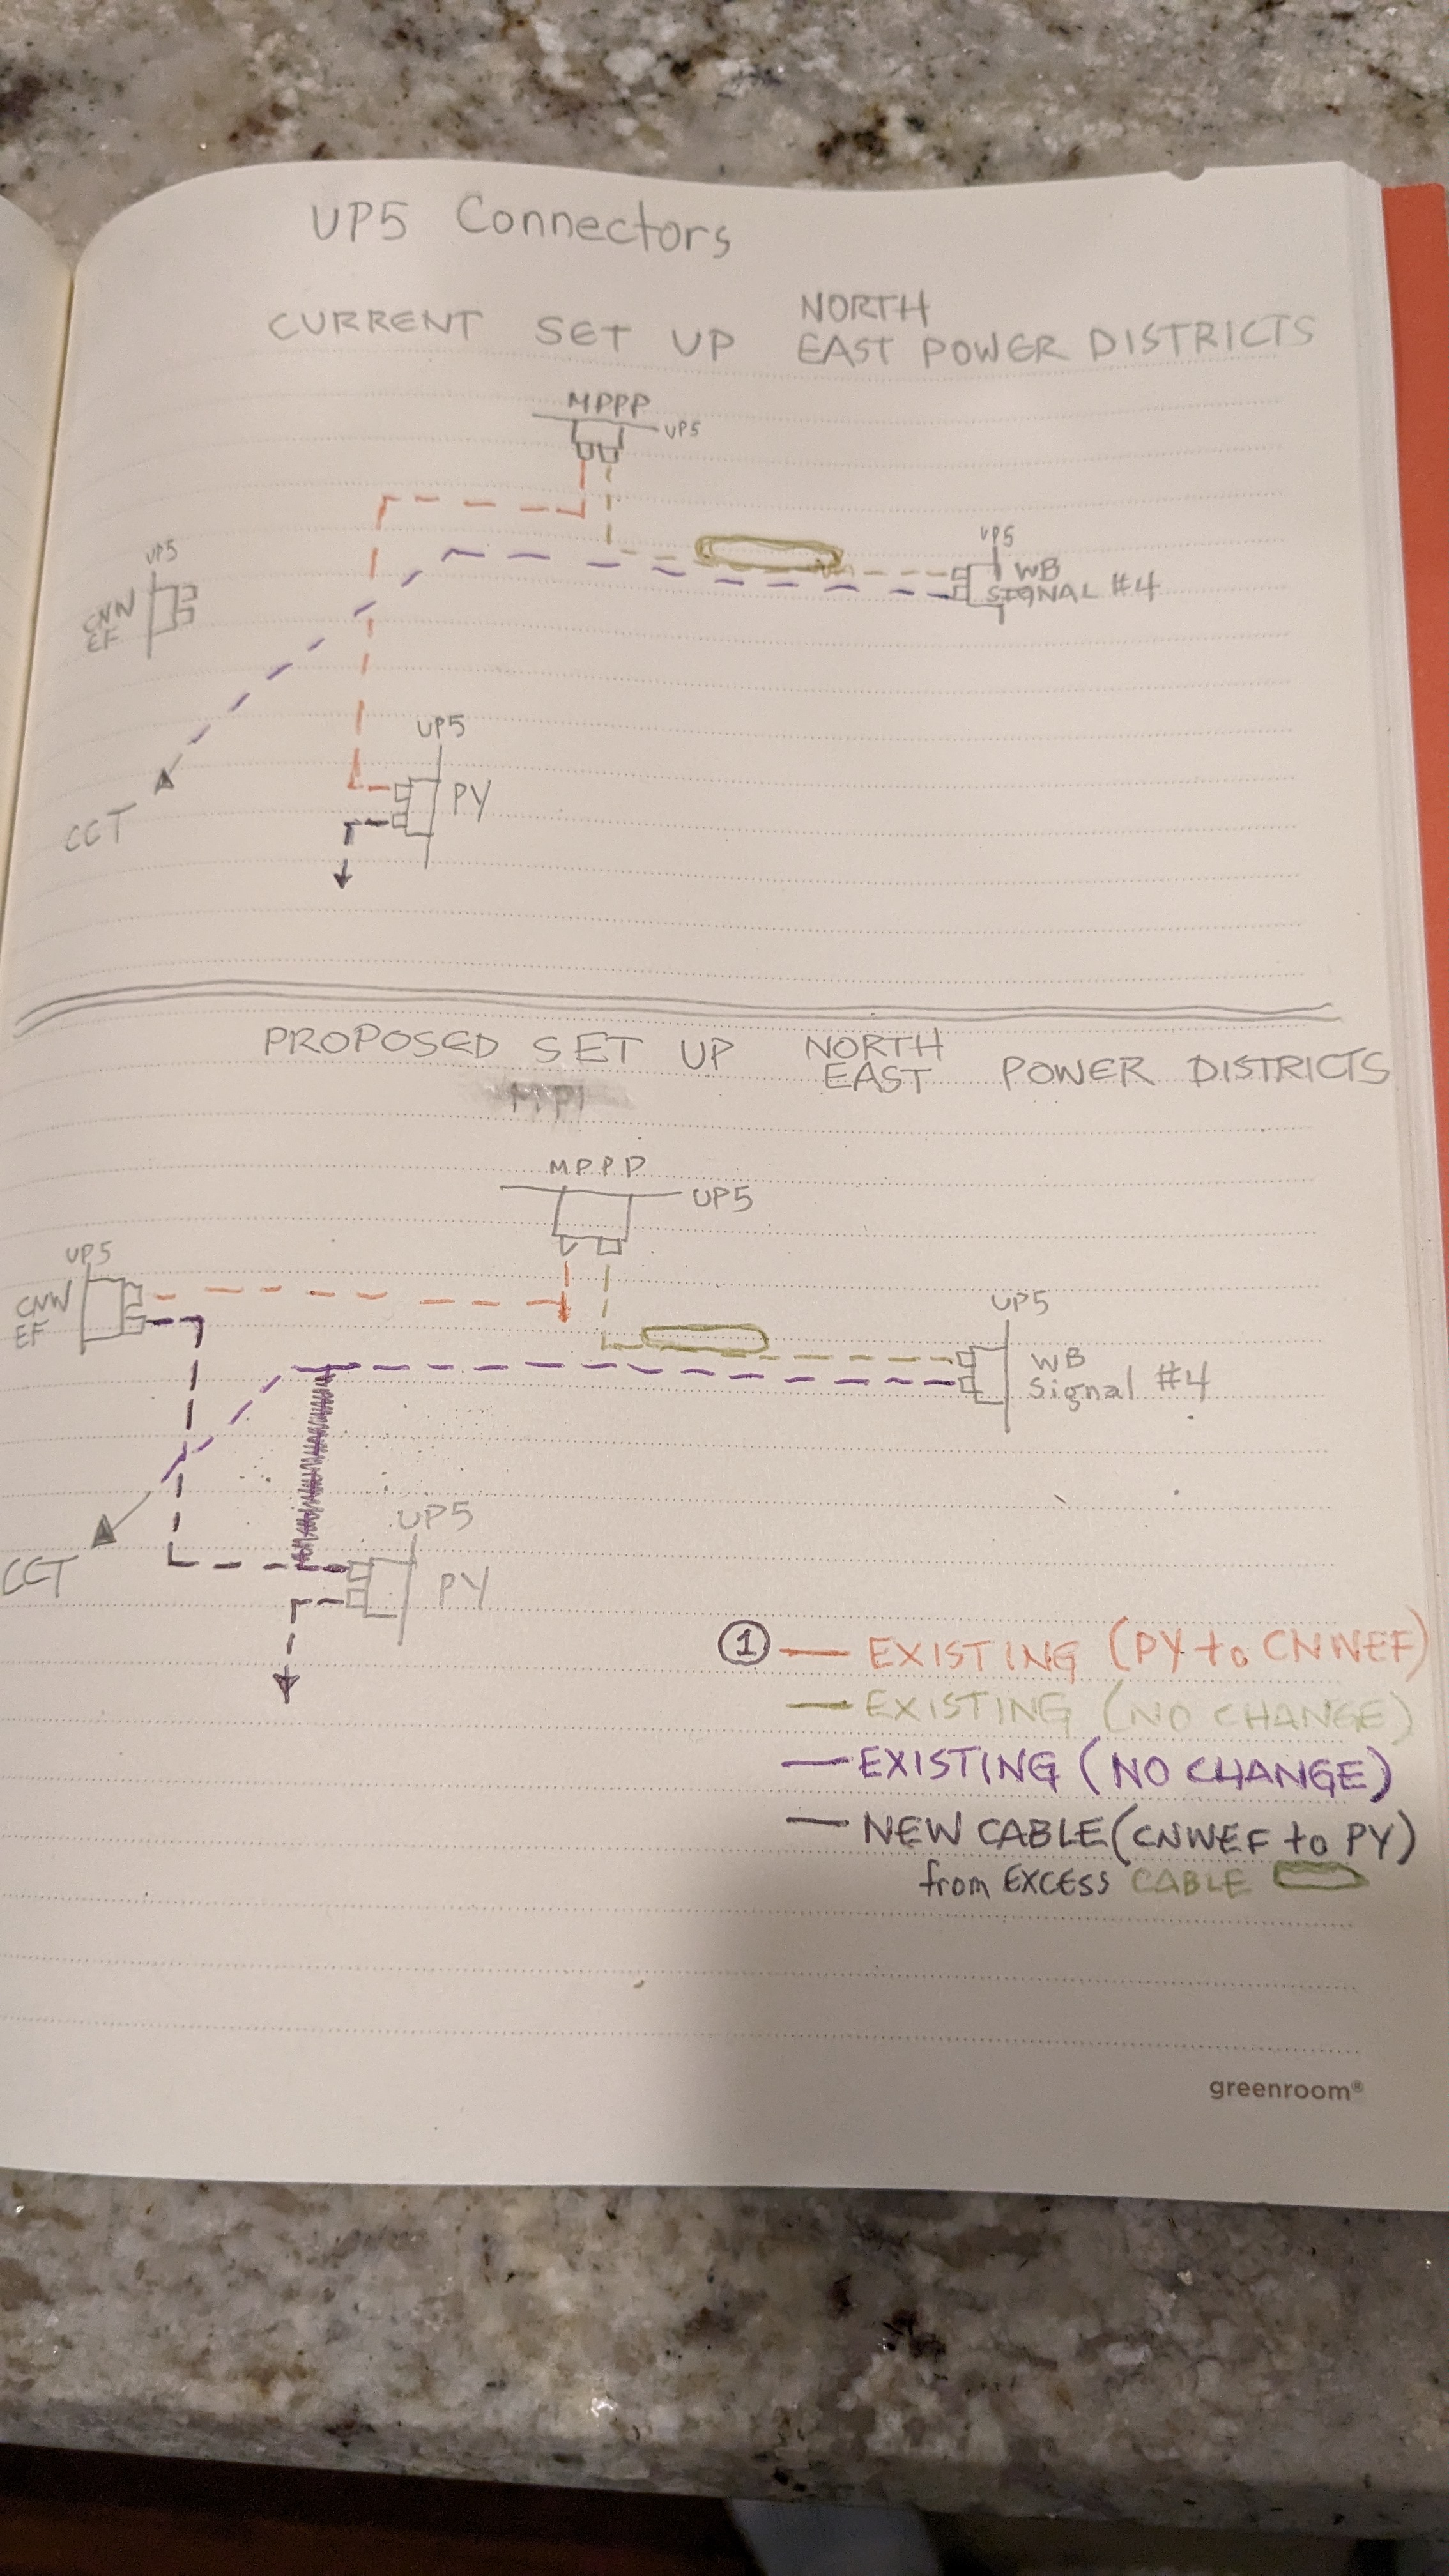 UP5 Connectors
CURRENT SET UP NORTH
EAST POWER DISTRICTS
MPPP
UP5
UP5
WB
SIGNAL #4
UP5
CNW
EF
UP5
PY
CCT
PROPOSED SET UP NORTH
EAST POWER DISTRICTS
MPP
MPPP
UP5
UP5
CNW
EF
UP5
WB
Signal #4
UP5
PY
CCT
1 — EXISTING (PY to CNWEF)
— EXISTING (NO CHANGE)
— EXISTING (NO CHANGE)
— NEW CABLE (CNWEF to PY)
from EXCESS CABLE
greenroom®